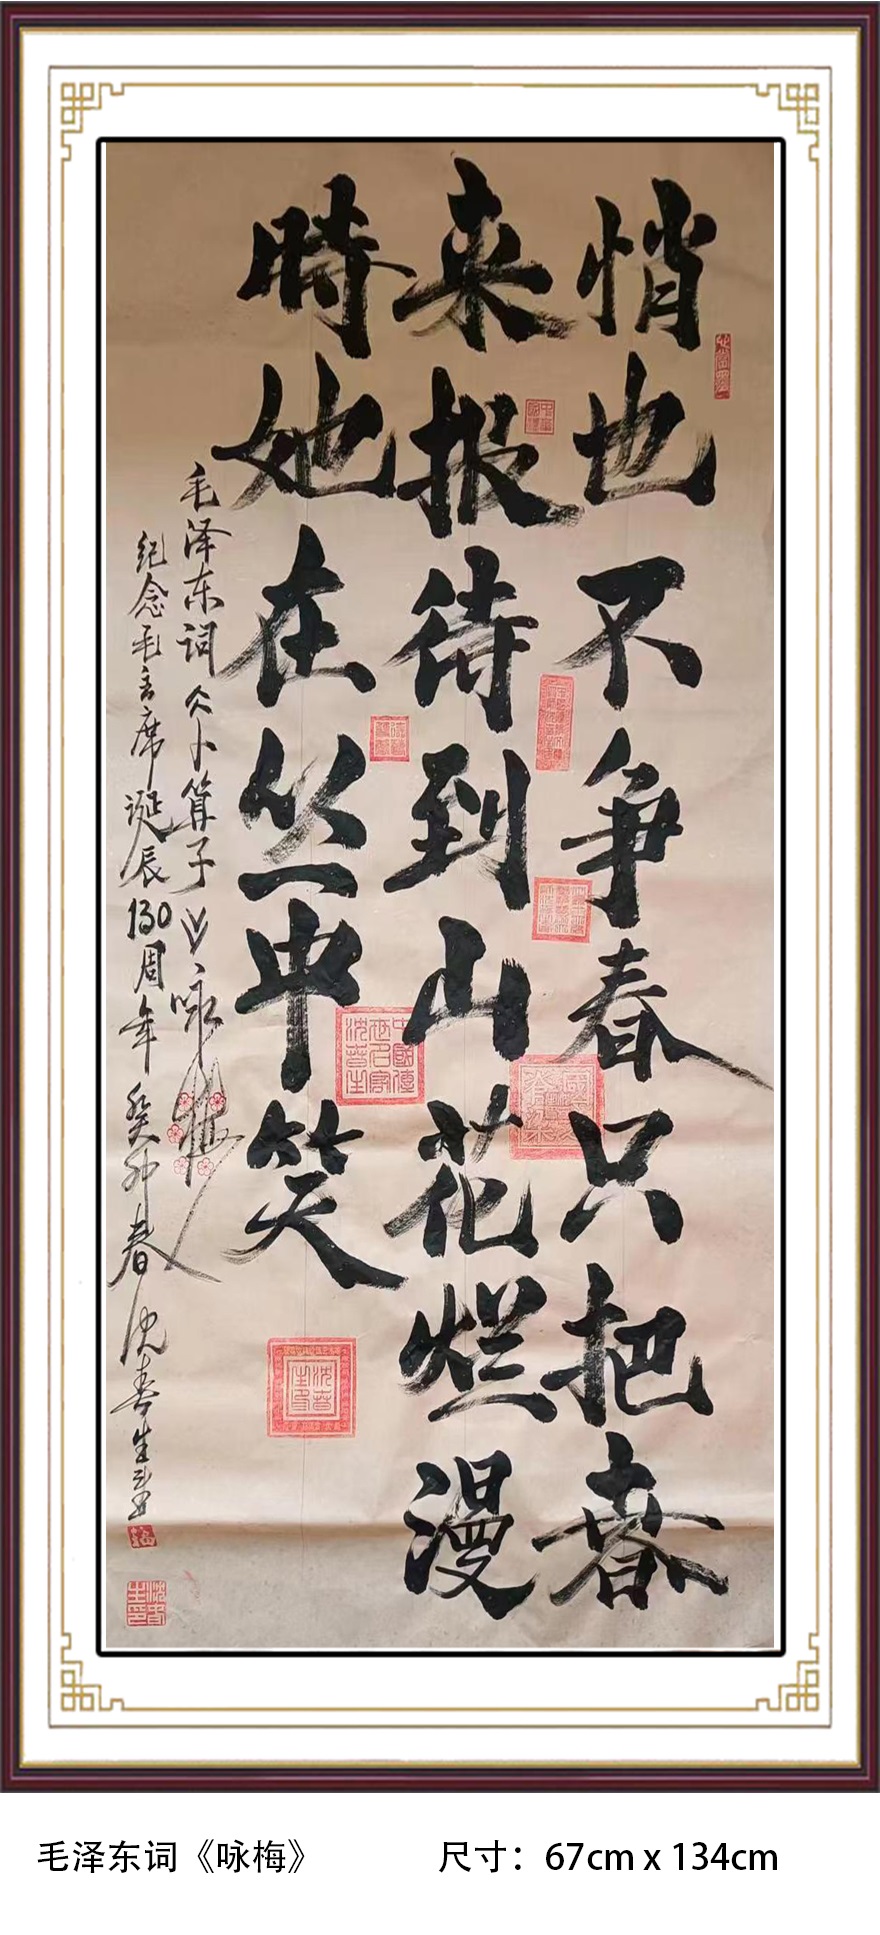 悄也不争春只把春
来报待到山花烂漫
時她在丛中笑
毛泽东词《卜算子》、咏梅
纪念毛主席诞辰130周年 癸卯春 沈春生书
中國傳世名家沈春生
沈春生印
毛泽东词《咏梅》 尺寸：67cm x 134cm